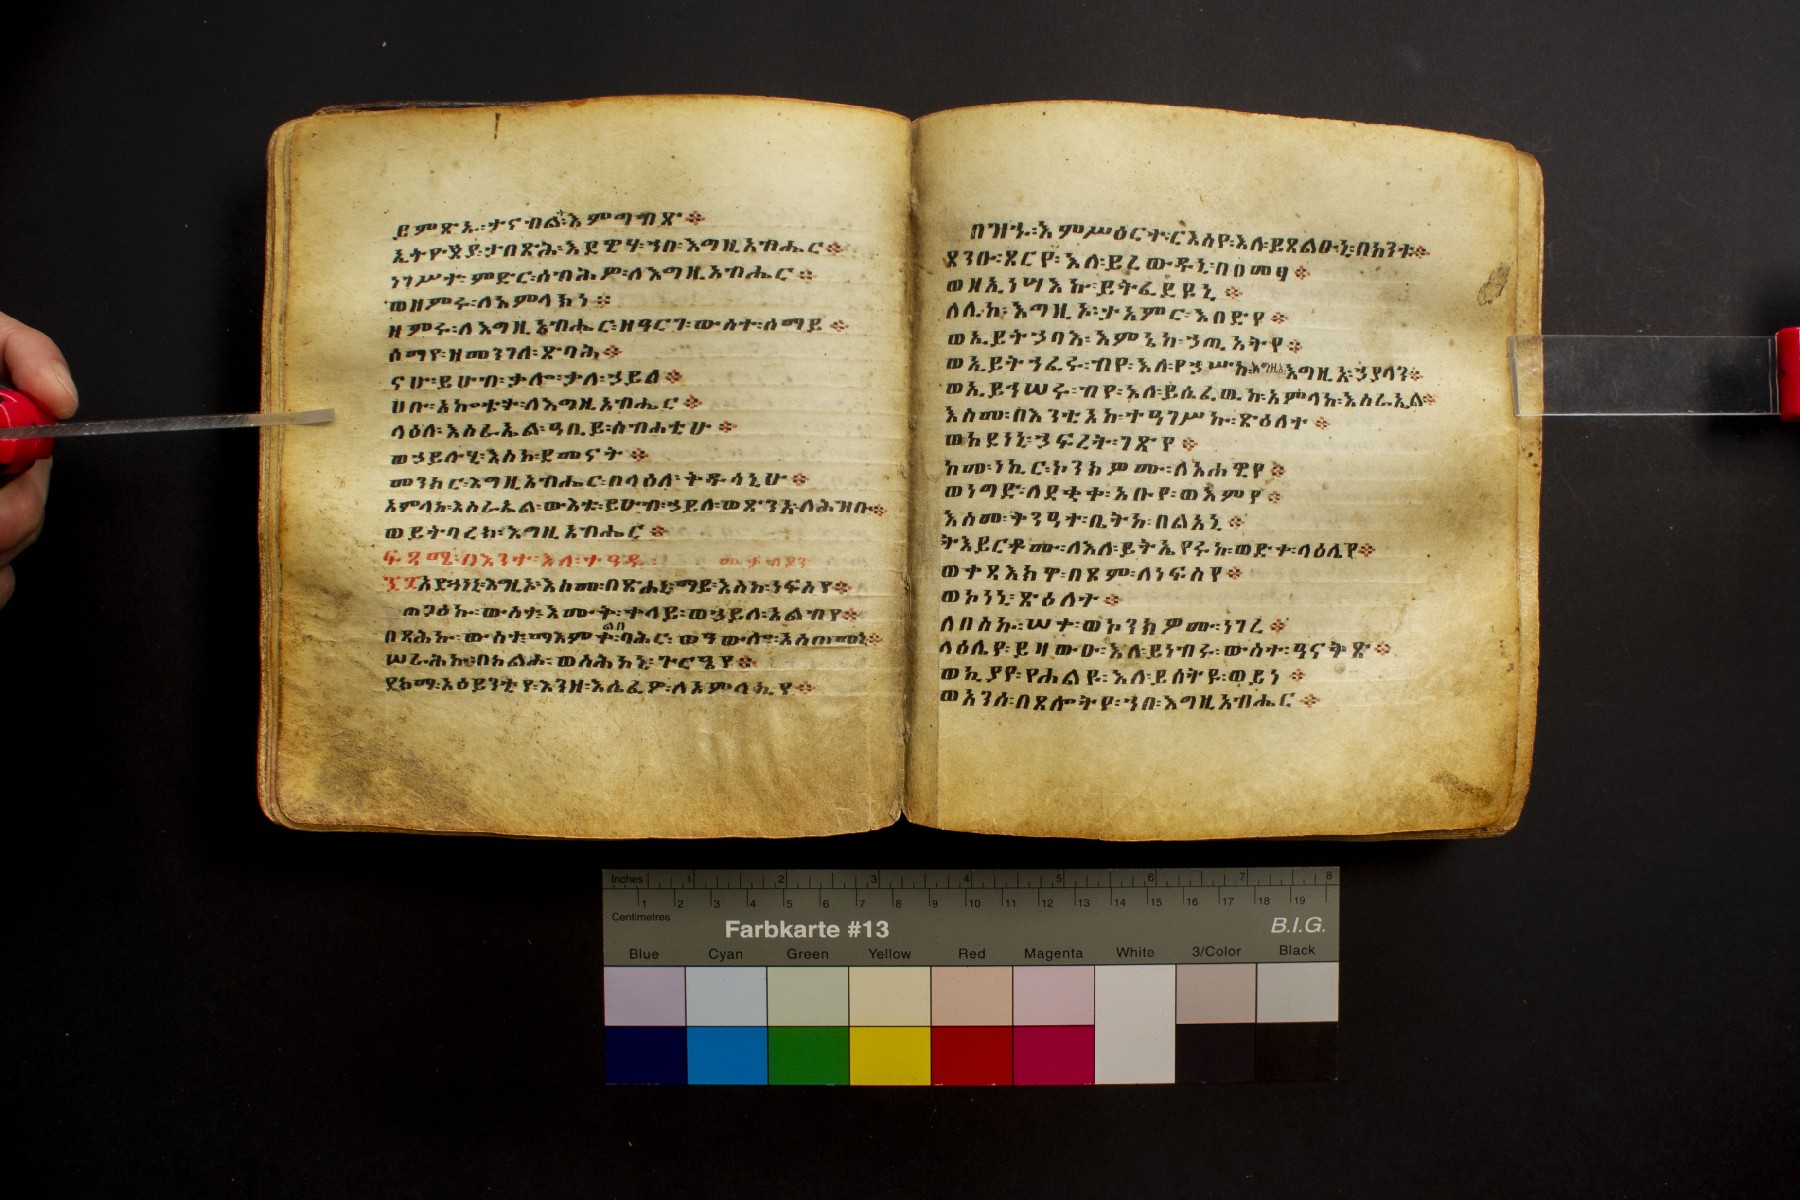 ይምጽኡ፡ተናብልእምግብጽ፨
ኢትዮጵያ፡ታበጽሕ፡እደዊሃ፡ኀበ፡እግዚአብሔር፨
ነገሥተ፡ምድር፡ሰብሕዎ፡ለእግዚአብሔር፨
ወዘምሩ፡ለአምላክነ፨
ዘምሩ፡ለእግዚኣብሔር፡ዘዓርገ፡ውስተ፡ሰማይ፨
ሰማየ፡ዘመንገለ፡ጽባሕ፨
ናሁ፡ይሁብ፡ቃሎ፡ቃለ፡ኃይል፨
ሀቡ፡አኰቴተ፡ለእግዚአብሔር፨
ላዕለ፡እስራኤል፡ዓቢይ፡ስብሐቲሁ፨
ወኃይሉሂ፡እስከ፡ደመናት፨
መንክር፡እግዚአብሔር፡በላዕለ፡ቅዱሳኒሁ፨
አምላከ፡እስራኤል፡ውእቱ፡ይሁብ፡ኃይለ፡ወጽንአ፡ለሕዝቡ፨
ወይትባረክ፡እግዚአብሔር፨
ፍጻሜ፡በእንተ፡እለ፡ተዓዱ፡
፷፰አድኅነኒ፡እግዚኦ፡እስመ፡በጽሐኒ፡ማይ፡እስከ፡ነፍስየ፨
ጠጋዕኩ፡ውስተ፡እሙቅ፡ተላይ፡ወኃይለ፡አልብየ፨
በጻሕኩ፡ውስተ፡ማእምቀ፡ባሕር፡ወዓውሎ፡አስጠመኒ፨
ልበ
ሠራሕኩ፡በከልሖ፡ወስሕከኒ፡ጉርዔየ፨
ደክማ፡አዕይንቲየ፡እንዘ፡እሴፈዎ፡ለአምላኪየ፨
በዝኁ፡እምሥዕርተ፡ርእስየ፡እለ፡ይጸልዑኒ፡በከንቱ፨
ጸንዑ፡ጸርየ፡እለ፡ይረውዱኒ፡በዐመፃ፨
ወዘኢነሣእኩ፡ይትፈደዩኒ፨
ለሊከ፡እግዚኦ፡ታአምር፡እበድየ፨
ወኢይትኃባእ፡እምኔከ፡ኃጢአትየ፨
ወኢይትኀፈሩ፡ብየ፡እለ፡የኃሥሡከእግዚአ፡እግዚአ፡ኃያላን፨
ወኢይኀሠሩ፡ብየ፡እለ፡ይሴፈዉከ፡አምላከ፡እስራኤል፨
እስመ፡በእንቲአከ፡ተዓገሥኩ፡ጽዕለተ፨
ወከደነኒ፡ኃፍረት፡ገጽየ፨
ከመ፡ነኪር፡ኮንክዎሙ፡ለአሐዊየ፨
ወነግድ፡ለደቂቀ፡አቡየ፡ወእምየ፨
እስመ፡ቅንዓተ፡ቤትከ፡በልአኒ፨
ትእይርቶሙ፡ለእለ፡ይትኤየሩከ፡ወድቀ፡ላዕሌየ፨
ወቀጻእክዋ፡በጾም፡ለነፍስየ፨
ወኮነኒ፡ጽዕለተ፨
ለበስኩ፡ሠቀ፡ወኮንክዎሙ፡ነገረ፨
ላዕሌየ፡ይዛውዑ፡እለ፡ይነብሩ፡ውስተ፡ዓናቅጽ፨
ወኪያየ፡የሐልዩ፡እለ፡ይሰትዩ፡ወይነ፨
ወአንሰ፡በጸሎትየ፡ኀበ፡እግዚአብሔር፨
Inches 1 2 3 4 5 6 7 8
1 2 3 4 5 6 7 8 9 10 11 12 13 14 15 16 17 18 19
Centimetres
Farbkarte #13
B.I.G.
Blue Cyan Green Yellow Red Magenta White 3/Color Black